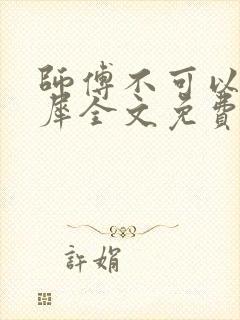 師傅不可以
犀全文免費
許娟